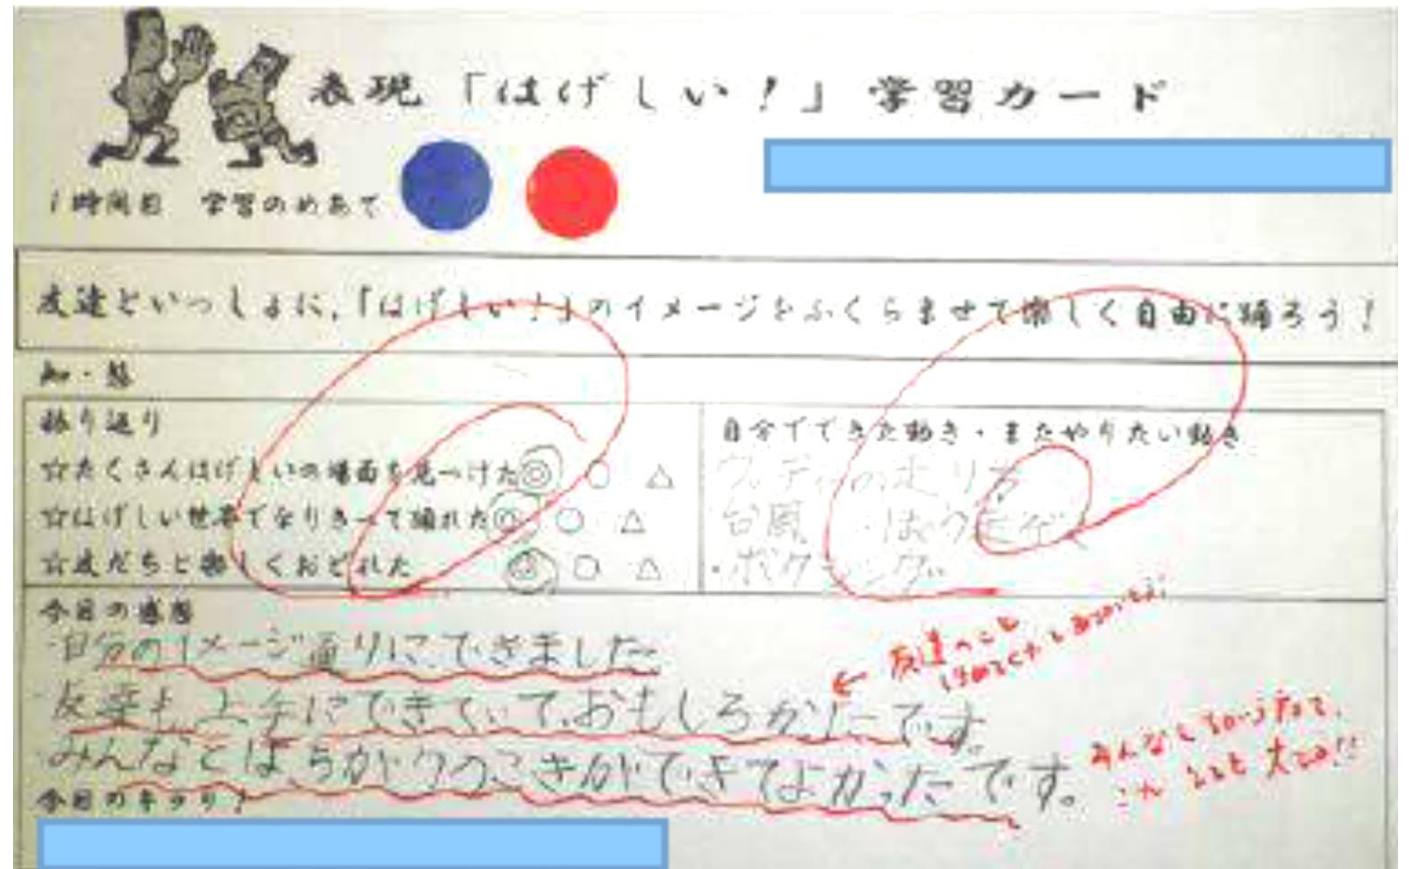 表現「はげしい！」学習カード
1時間目 学習のめあて
友達といっしょに、「はげしい！」のイメージをふくらませて楽しく自由に踊ろう！
知・態
振り返り
☆たくさんはげしいの場面を見つけた ◎ ○ △
☆はげしい世界でなりきって踊れた ◎ ○ △
☆友だちと楽しくおどれた ◎ ○ △
自分でできた動き・またやりたい動き
の走り方
台風
・ボクシング
今日の感想
・自分のイメージ通りにできました
・友達も上手にできていて、おもしろかったです。
・みんなとはちがうのごきができてよかったです。
友達のこと
みんなと
大切!!
今日のキラリ！